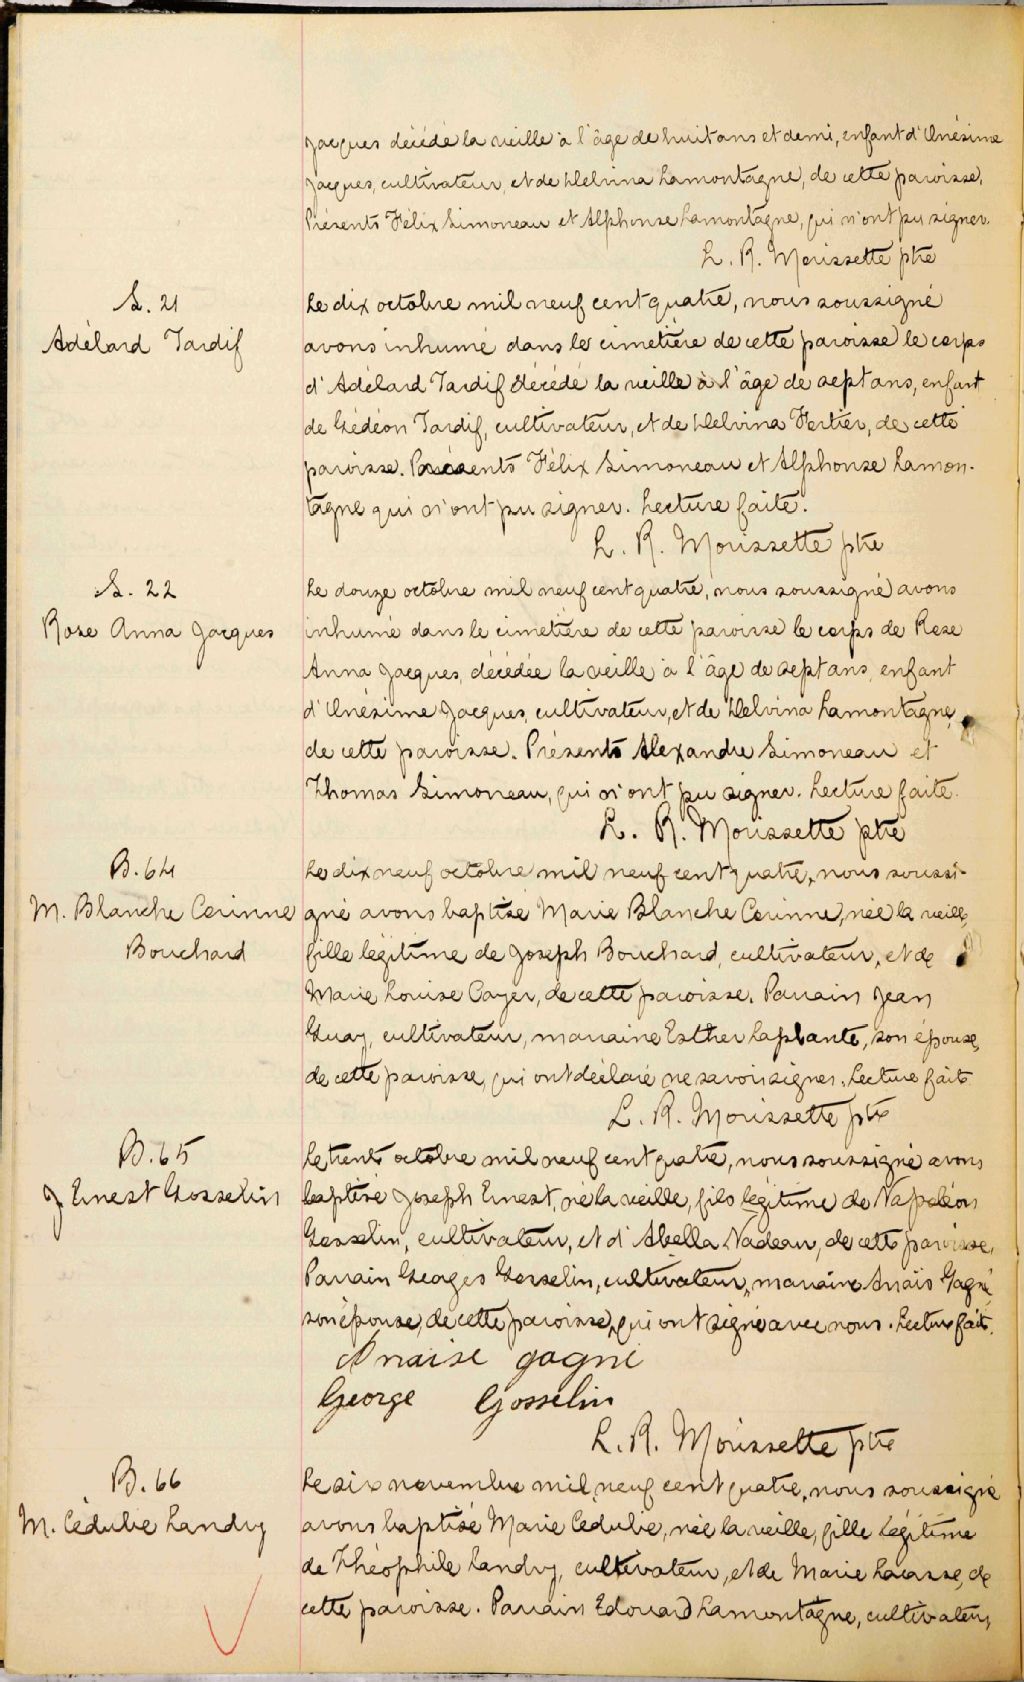 Jacques décédé la veille à l'âge de huit ans et demi, enfant d'Onésime
Jacques, cultivateur, et de Delvina Lamontagne, de cette paroisse.
Présents Félix Simoneau et Alphonse Lamontagne, qui n'ont pu signer.
L. R. Morissette ptre
S. 21
Adélard Tardif
Le dix octobre mil neuf cent quatre, nous soussigné
avons inhumé dans le cimetière de cette paroisse le corps
d'Adélard Tardif décédé la veille à l'âge de sept ans, enfant
de Gédéon Tardif, cultivateur, et de Delvina Fortier, de cette
paroisse. Présents Félix Simoneau et Alphonse Lamon-
tagne qui n'ont pu signer. Lecture faite.
L. R. Morissette ptre
S. 22
Rose Anna Jacques
Le douze octobre mil neuf cent quatre, nous soussigné avons
inhumé dans le cimetière de cette paroisse le corps de Rose
Anna Jacques, décédée la veille à l'âge de sept ans, enfant
d'Onésime Jacques, cultivateur, et de Delvina Lamontagne,
de cette paroisse. Présents Alexandre Simoneau et
Thomas Simoneau, qui n'ont pu signer. Lecture faite.
L. R. Morissette ptre
B. 64
M. Blanche Corinne
Bouchard
Le dix neuf octobre mil neuf cent quatre, nous soussi-
gné avons baptisé Marie Blanche Corinne, née la veille,
fille légitime de Joseph Bouchard, cultivateur, et de
Marie Louise Cayer, de cette paroisse. Parrain Jean
Guay, cultivateur, marraine Esther Laplante, son épouse,
de cette paroisse, qui ont déclaré ne savoir signer. Lecture faite
L. R. Morissette ptre
B. 65
J Ernest Gosselin
Le trente octobre mil neuf cent quatre, nous soussigné avons
baptisé Joseph Ernest, né la veille, fils légitime de Napoléon
Gosselin, cultivateur, et d'Abella Nadeau, de cette paroisse.
Parrain Georges Gosselin, cultivateur, marraine Anaïs Gagné,
son épouse, de cette paroisse, qui ont signé avec nous. Lecture faite.
Anaise gagné
George Gosselin
L. R. Morissette ptre
B. 66
M. Cédulie Landry
Le six novembre mil neuf cent quatre, nous soussigné
avons baptisé Marie Cédulie, née la veille, fille légitime
de Théophile Landry, cultivateur, et de Marie Lacasse, de
cette paroisse. Parrain Edouard Lamontagne, cultivateur,